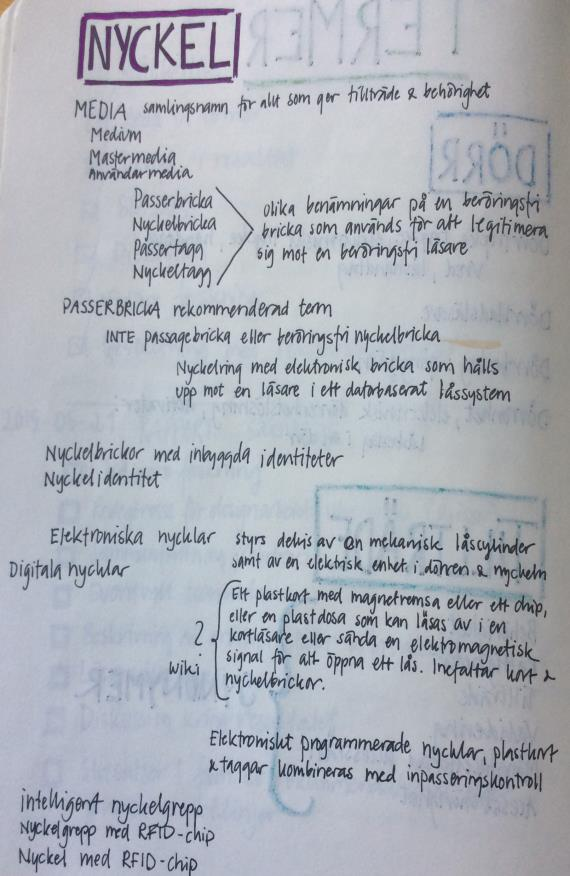 NYCKEL
MEDIA samlingsnamn för allt som ger tillträde & behörighet
Medium
Mastermedia
Användarmedia
Passerbricka
Nyckelbricka
Passertagg
Nyckeltagg
olika benämningar på en beröringsfri
bricka som används för att legitimera
sig mot en beröringsfri läsare
PASSERBRICKA rekommenderad term
INTE passagebricka eller beröringsfri nyckelbricka
Nyckelring med elektronisk bricka som hålls
upp mot en läsare i ett datorbaserat låssystem
Nyckelbrickor med inbyggda identiteter
Nyckelidentitet
Elektroniska nycklar styrs delvis av en mekanisk låscylinder
Digitala nycklar samt av en elektrisk enhet i dörren & nyckeln
Ett plastkort med magnetremsa eller ett chip,
eller en plastdosa som kan läsas av i en
kortläsare eller sända en elektromagnetisk
signal för att öppna ett lås. Inefattar kort &
nyckelbrickor.
?
wiki
Elektroniskt programmerade nycklar, plastkort
& taggar kombineras med inpasseringskontroll
intelligent nyckelgrepp
Nyckelgrepp med RFID-chip
Nyckel med RFID-chip